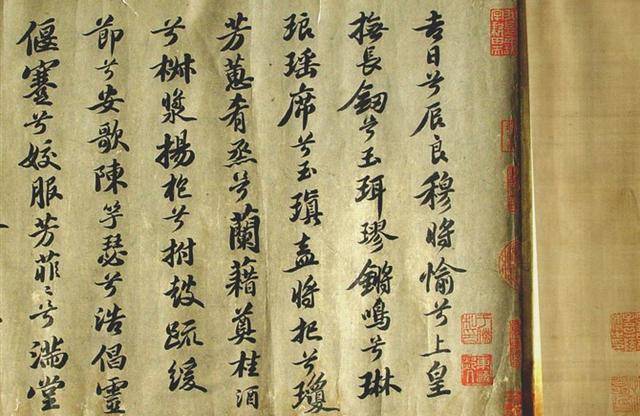 吉日兮辰良穆將愉兮上皇
撫長釼兮玉珥璆鏘鳴兮琳
琅瑶席兮玉瑱盍將把兮瓊
芳蕙肴烝兮蘭藉奠桂酒
兮椒漿揚枹兮拊鼓疏緩
節兮安歌陳竽瑟兮浩倡靈
偃蹇兮姣服芳菲〻兮滿堂